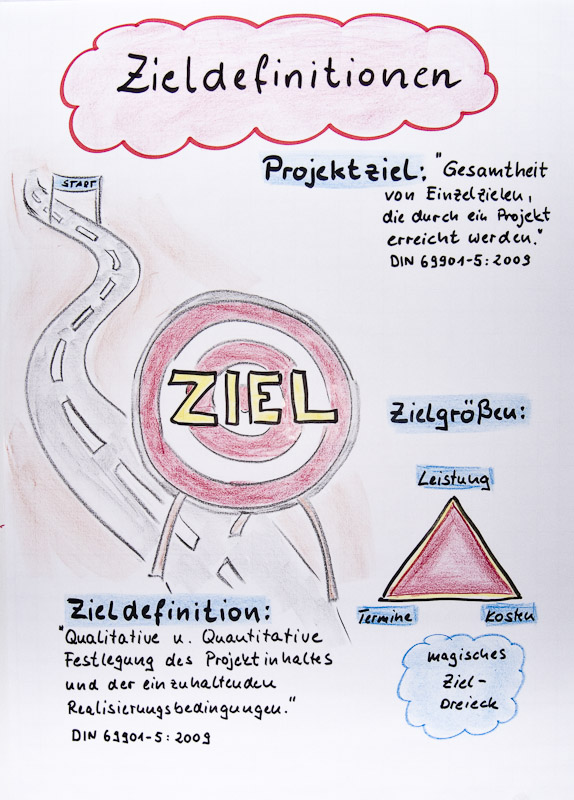 Zieldefinitionen
START
Projektziel: "Gesamtheit
von Einzelzielen,
die durch ein Projekt
erreicht werden."
DIN 69901-5:2009
ZIEL
Zielgrößen:
Leistung
Termine Kosten
magisches
Ziel-
Dreieck
Zieldefinition:
"Qualitative u. Quantitative
Festlegung des Projektinhaltes
und der einzuhaltenden
Realisierungsbedingungen."
DIN 69901-5:2009